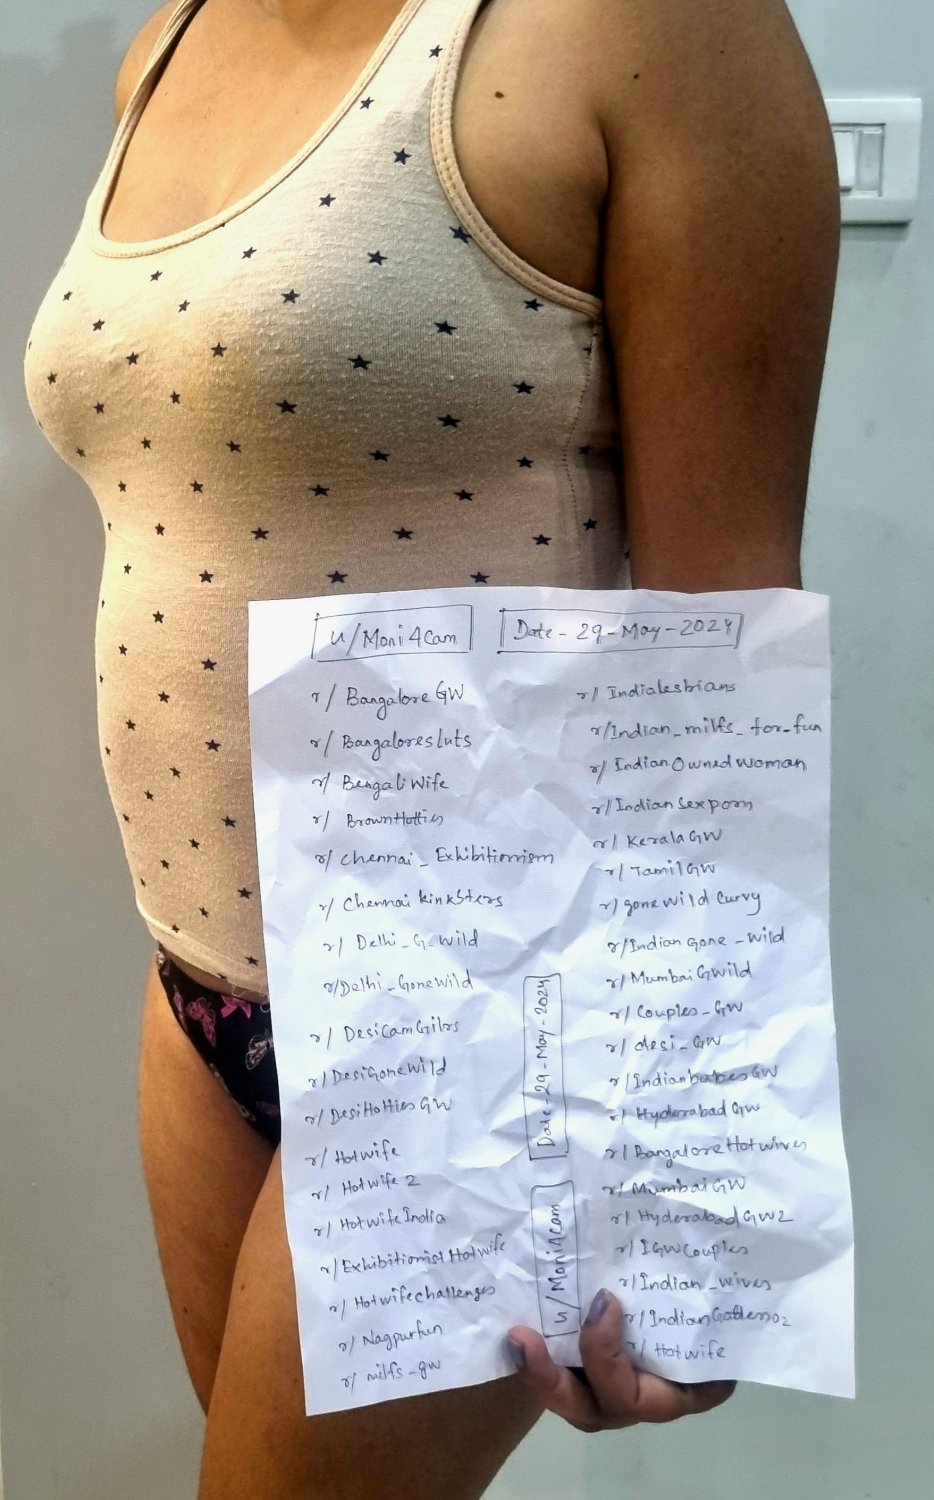 u/Moni4Cam
Date - 29-May-2024
r/BangaloreGW
r/Bangaloresluts
r/BengaliWife
r/BrownHotties
r/Chennai_Exhibitionism
r/Chennai kinksters
r/Delhi_G_Wild
r/Delhi_GoneWild
r/DesiCamGilrs
r/DesiGonewild
r/DesiHottiesGW
r/Hotwife
r/Hotwife2
r/HotwifeIndia
r/ExhibitionistHotwife
r/Hotwifechallenges
r/Nagpurfun
r/milfs_gw
r/Indialesbians
r/Indian_milfs_for_fun
r/IndianOwnedwoman
r/Indiansexporn
r/KeralaGW
r/TamilGW
r/gonewildcurvy
r/Indiangone_wild
r/MumbaiGwild
r/Couples_GW
r/desi_GW
r/IndianbabesGW
r/HyderabadGW
r/BangaloreHotwives
r/MumbaiGW
r/HyderabadGW2
r/IGWcouples
r/Indian_wives
r/Hotwife
Date-29-May-2024
u/Moni4cam